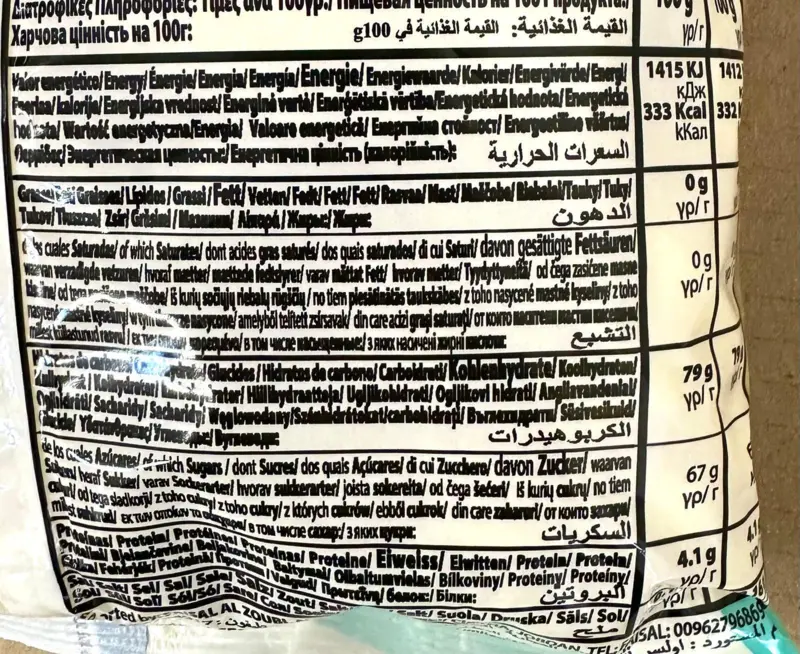 Διατροφικές Πληροφορίες: Τιμές ανά 100γρ./ Пищевая ценность на 100 г продукта:/
Харчова цінність на 100г: القيمة الغذائية: القيمة الغذائية في 100g
γρ/г
Valor energético/ Energy/ Énergie/ Energia/ Energía/ Energie/ Energiewaarde/ Kalorier/ Energivärde/ Energi/
Energia/ kalorije/ Energijska vrednost/ Energinė vertė/ Enerģētiskā vērtība/ Energetická hodnota/ Energetická
hodnota/ Wartość energetyczna/Energia/ Valoare energetică/ Енергийна стойност/ Energeetiline väärtus/
Θερμίδες/ Энергетическая ценность:/ Енергетична цінність (калорійність): السعرات الحرارية
1415 KJ 1412
кДж
333 Kcal 332
kКал
Graisses/ Lípidos/ Grassi/ Fett/ Vetten/ Fedt/ Fett/ Fett/ Rasvaa/ Mast/ Maščobe/ Riebalai/Tauky/ Tuky/
Tukov/ Tłuszcze/ Zsír/ Grăsimi/ Мазнини/ Λιπαρά/ Жиры:/ Жири: الدهون
0 g
γρ/ г
de los cuales Saturadas/ of which Saturates/ dont acides gras saturés/ dos quais saturados/ di cui Saturi/ davon gesättigte Fettsäuren/
waarvan verzadigde vetzuren/ hvoraf mætter/ mettede fedtslyrer/ varav mättat Fett/ hvorav metter/ Tyydyttyneitä/ od čega zasićene masne
od tega nasičene maščobe/ iš kurių sočiųjų riebalų rūgščių/ no tiem piesātinātās taukskābes/ z toho nasycené mastné kyseliny/ z toho
nasýtené mastné kyseliny/ w tym kwasy nasycone/ amelyből telített zsírsavak/ din care acizi grași saturați/ от които наситени мастни киселини/
millest küllastunud rasvu/ εκ των οποίων κορεσμένα/ в том числе насыщенные:/ з яких насичені жирні кислоти: التشبع
0 g
γρ/ г
Hidratos de carbono/ Carbohydrate/ Glucides/ Hidratos de carbono/ Carboidrati/ Kohlenhydrate/ Koolhydraten/
Kulhydrat/ Kolhydrater/ Karbohydrater/ Hiilihydraatteja/ Ugljikohidrati/ Ogljikovi hidrati/ Angliavandeniai/
Ogļhidrāti/ Sacharidy/ Sacharidy/ Węglowodany/Szénhidrátokat/carbohidrați/ Въглехидрати/ Süsivesikuid/
Υδατάνθρακες/ Углеводы:/ Вуглеводи: الكربوهيدرات
79 g 79
γρ/ г
de los cuales Azúcares/ of which Sugars / dont Sucres/ dos quais Açúcares/ di cui Zucchero/ davon Zucker/ waarvan
Suikers/ heraf Sukker/ varav Sockerarter/ hvorav sukkerarter/ joista sokereita/ od čega šećeri/ iš kurių cukrų/ no tiem
cukuri/ od tega sladkorji/ z toho cukry/ z toho cukry/ z których cukrów/ ebből cukrok/ din care zaharuri/ от които захари/
millest suhkrud/ εκ των οποίων τα σάκχαρα/ в том числе сахар:/ з яких цукри: السكريات
67 g
γρ/ г
Proteínas/ Protein/ Protéines/ Proteínas/ Proteine/ Eiweiss/ Eiwitten/ Protein/ Protein/
Proteiini/ Bjelančevine/ Beljakovine/ Baltymai/ Olbaltumvielas/ Bílkoviny/ Proteiny/ Proteíny/
Fehérjék/ Proteine/ Протеини/ Valgud/ Πρωτεΐνη/ белок:/ Білки: البروتين
4.1 g 4.1
γρ/ г
Sal/ Salt/ Sel/ Sal/ Sale/ Salz/ Zout/ Salt/ Suola/ Druska/ Sāls/ Soľ/
Sol/ Sól/Só/ Sare/ Сол/ ملح
γρ/ г
AL ZOUBI JORDAN. TEL: 0096279686